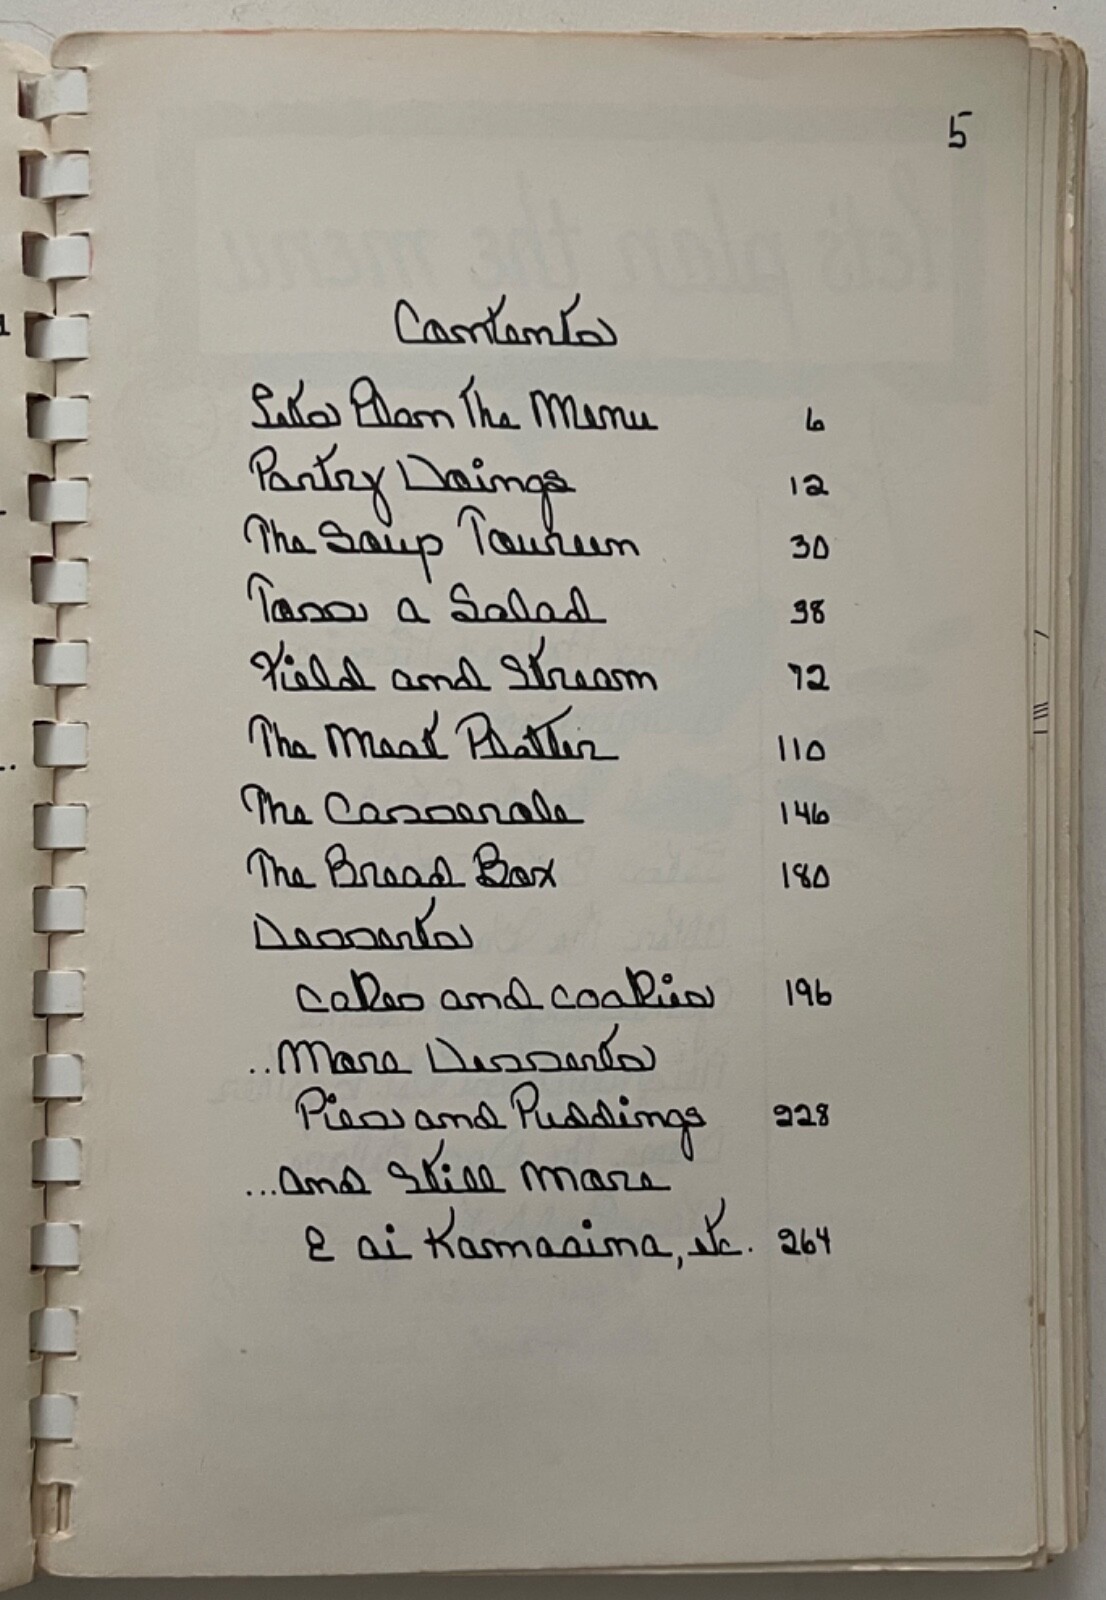 5
Contents
Lets Plan The Menu 6
Pantry Doings 12
The Soup Toureen 30
Toss a Salad 38
Field and Stream 72
The Meat Platter 110
The Casserole 146
The Bread Box 180
Desserts
cakes and cookies 196
..More Desserts
Pies and Puddings 228
...and Still More
E ai Kamaaina, etc. 264